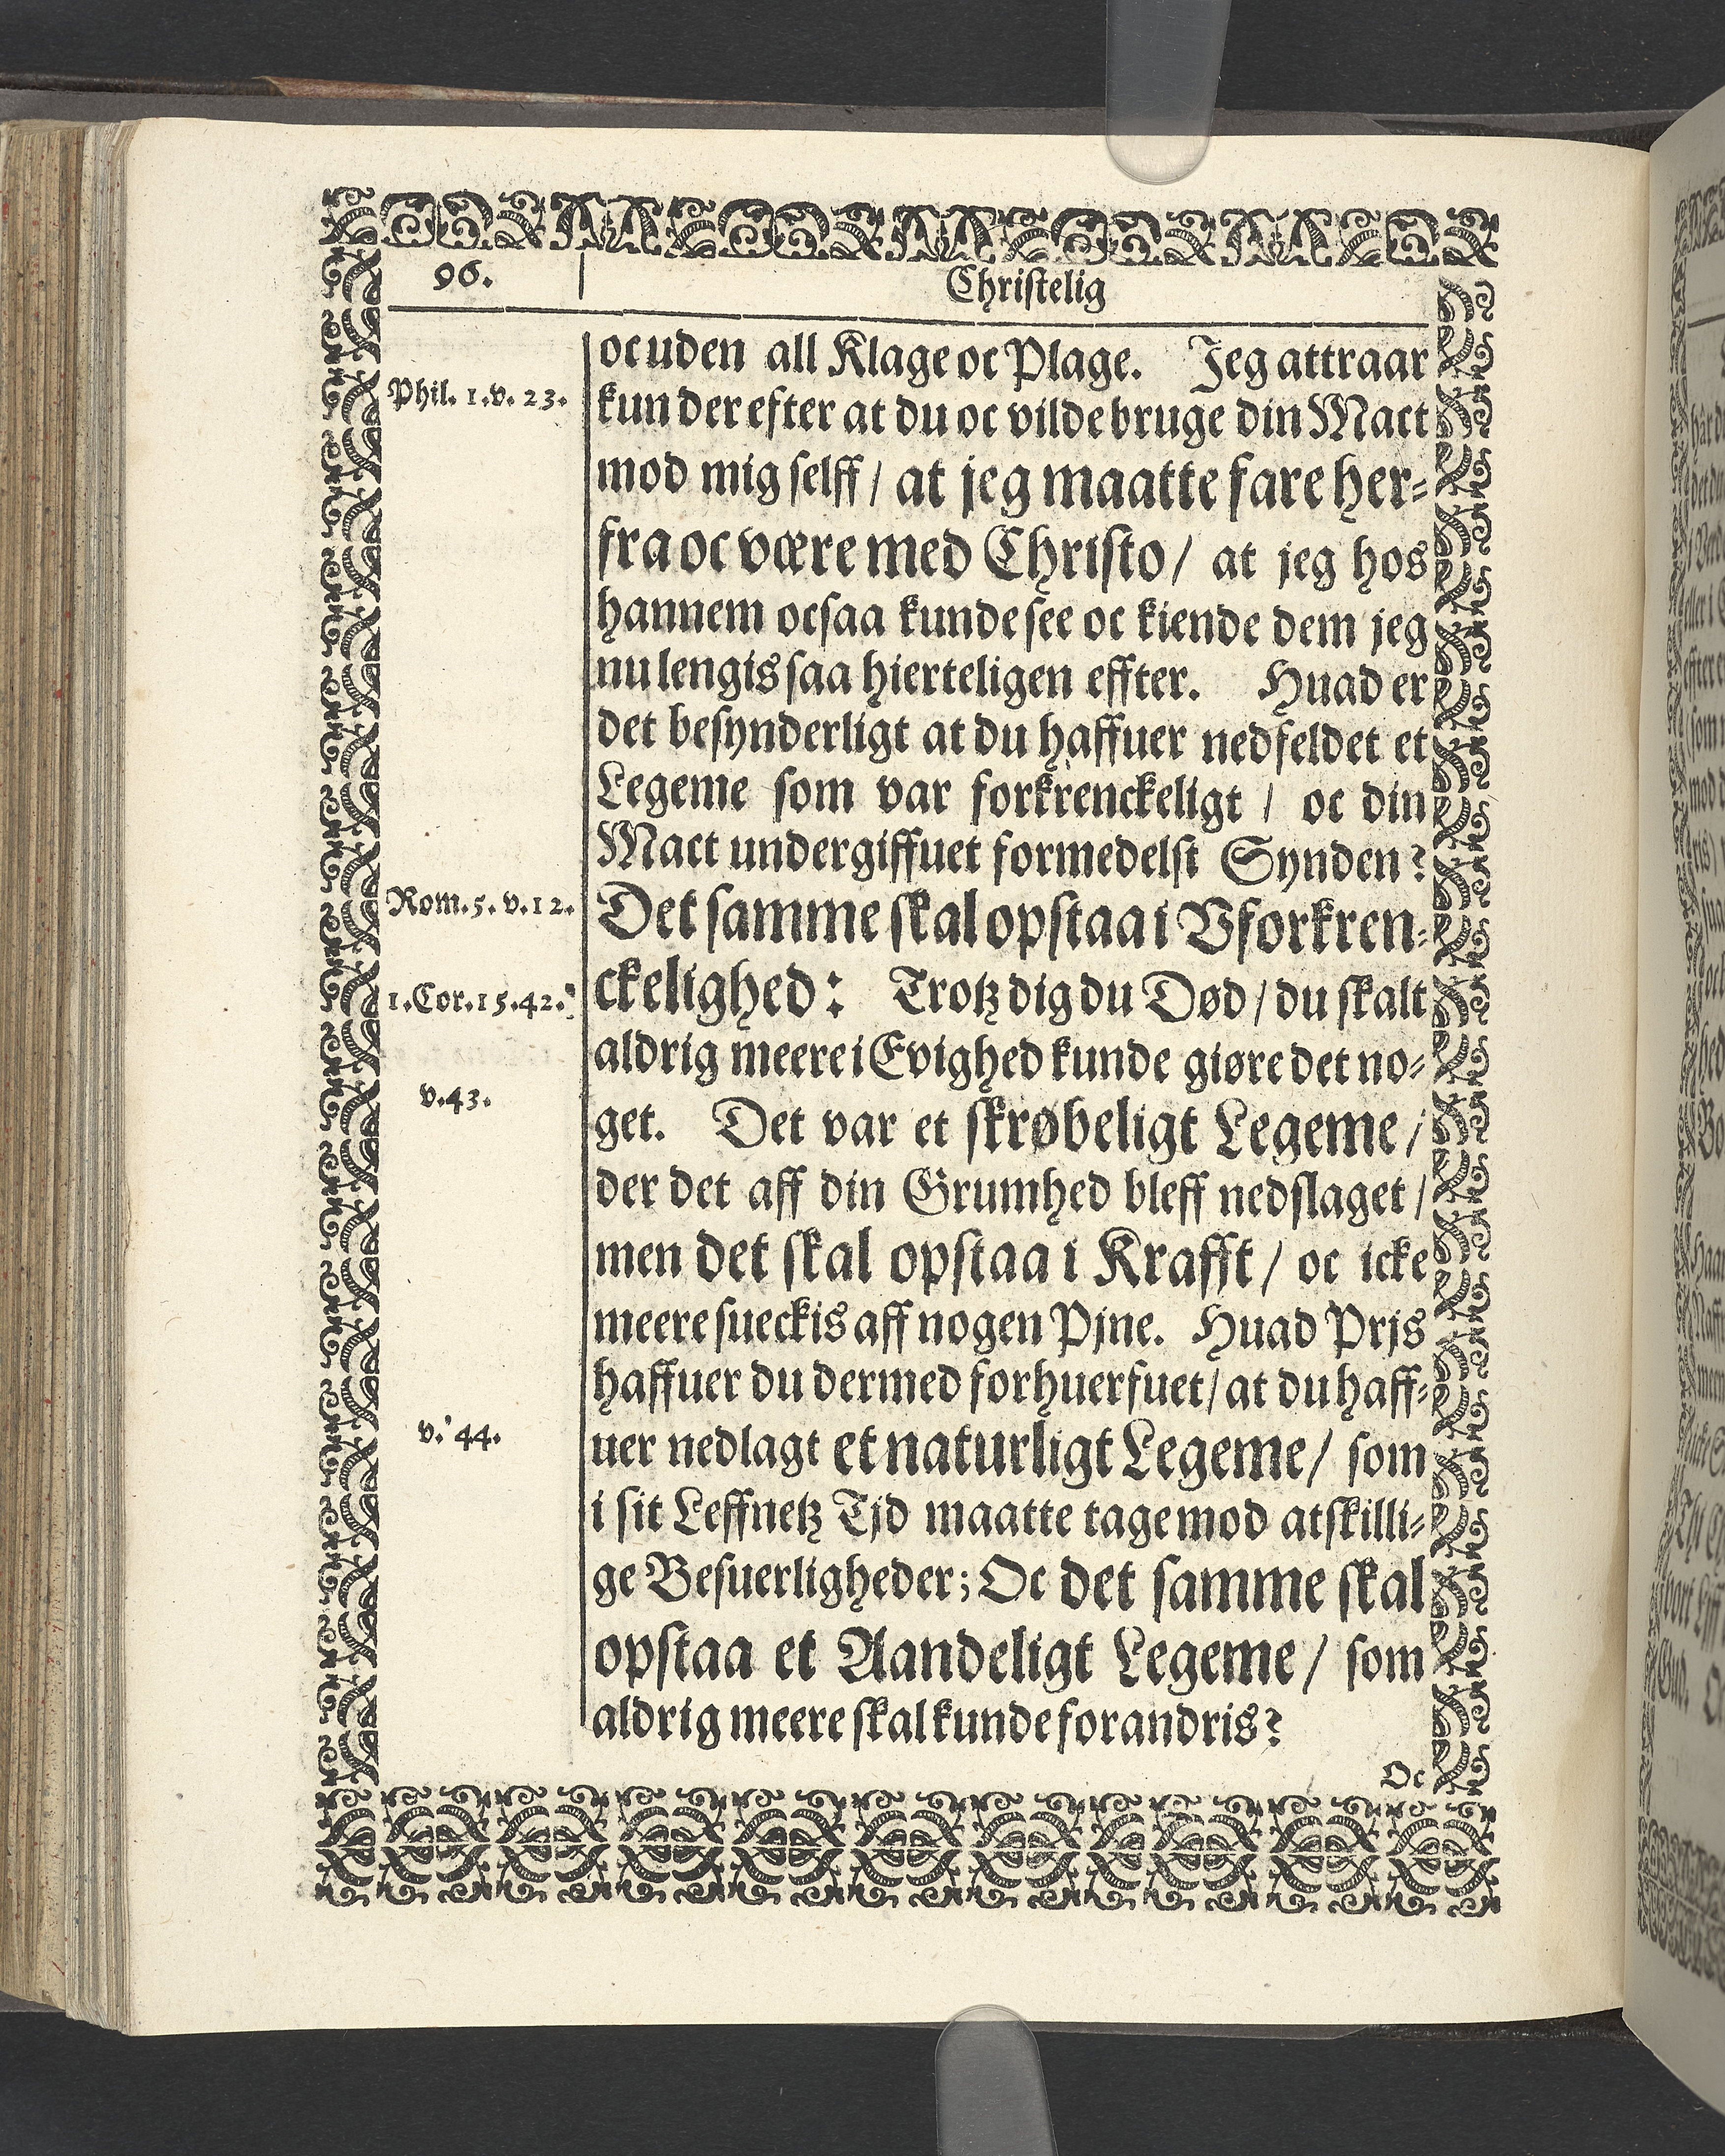 96.
Christelig
oc uden all Klage oc Plage. Jeg attraar
Phil. 1. v. 23.
kun der efter at du oc vilde bruge din Mact
mod mig selff / at jeg maatte fare her-
fra oc være med Christo / at jeg hos
hannem ocsaa kunde see oc kiende dem jeg
nu lengis saa hierteligen effter. Huad er
det besynderligt at du haffuer nedfeldet et
Legeme som var forkrenckeligt / oc din
Mact undergiffuet formedelst Synden?
Rom. 5. v. 12.
Det samme skal opstaa i Vforkren-
1. Cor. 15. 42.
ckelighed: Trotz dig du Død / du skalt
aldrig meere i Evighed kunde giøre det no-
v. 43.
get. Det var et skrøbeligt Legeme /
der det aff din Grumhed bleff nedslaget /
men det skal opstaa i Krafft / oc icke
meere sueckis aff nogen Pjne. Huad Prjs
haffuer du dermed forhuerfuet / at du haff-
v. 44.
uer nedlagt et naturligt Legeme / som
i sit Leffnetz Tjd maatte tage mod atskilli-
ge Besuerligheder; Oc det samme skal
opstaa et Aandeligt Legeme / som
aldrig meere skal kunde forandris?
Oc